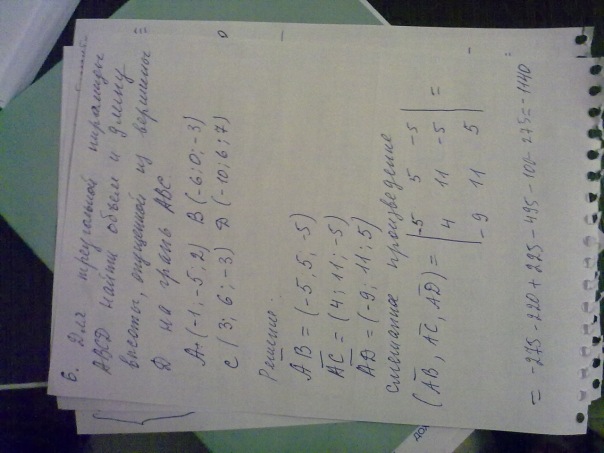 6. Для треугольной пирамиды
ABCD найти объем и длину
высоты, опущенной из вершины
D на грань ABC.
A (-1; -5; 2) B (-6; 0; -3)
C (3; 6; -3) D (-10; 6; 7)
Решение:
AB = (-5; 5; -5)
AC = (4; 11; -5)
AD = (-9; 11; 5)
Смешанное произведение
(AB, AC, AD) = | -5 5 -5 |
| 4 11 -5 | =
| -9 11 5 |
= -275 - 220 + 225 - 495 - 100 - 275 = -1140